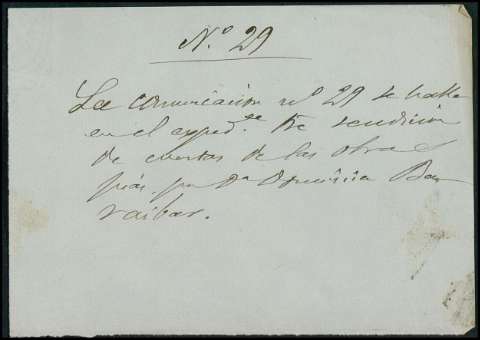 Nº 29
La comunicación nº 29 se halla
en el exped.te de rendición
de cuentas de las obras
pias por Dª Dominica Ba
raibar.